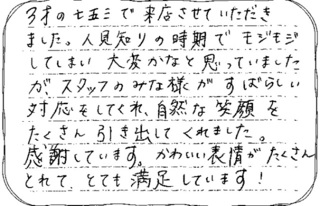 3才の七五三で来店させていただき
ました。人見知りの時期でモジモジ
してしまい大変かなと思っていました
が、スタッフのみな様がすばらしい
対応をしてくれ、自然な笑顔を
たくさん引き出してくれました。
感謝しています。かわいい表情がたくさん
とれて、とても満足しています!